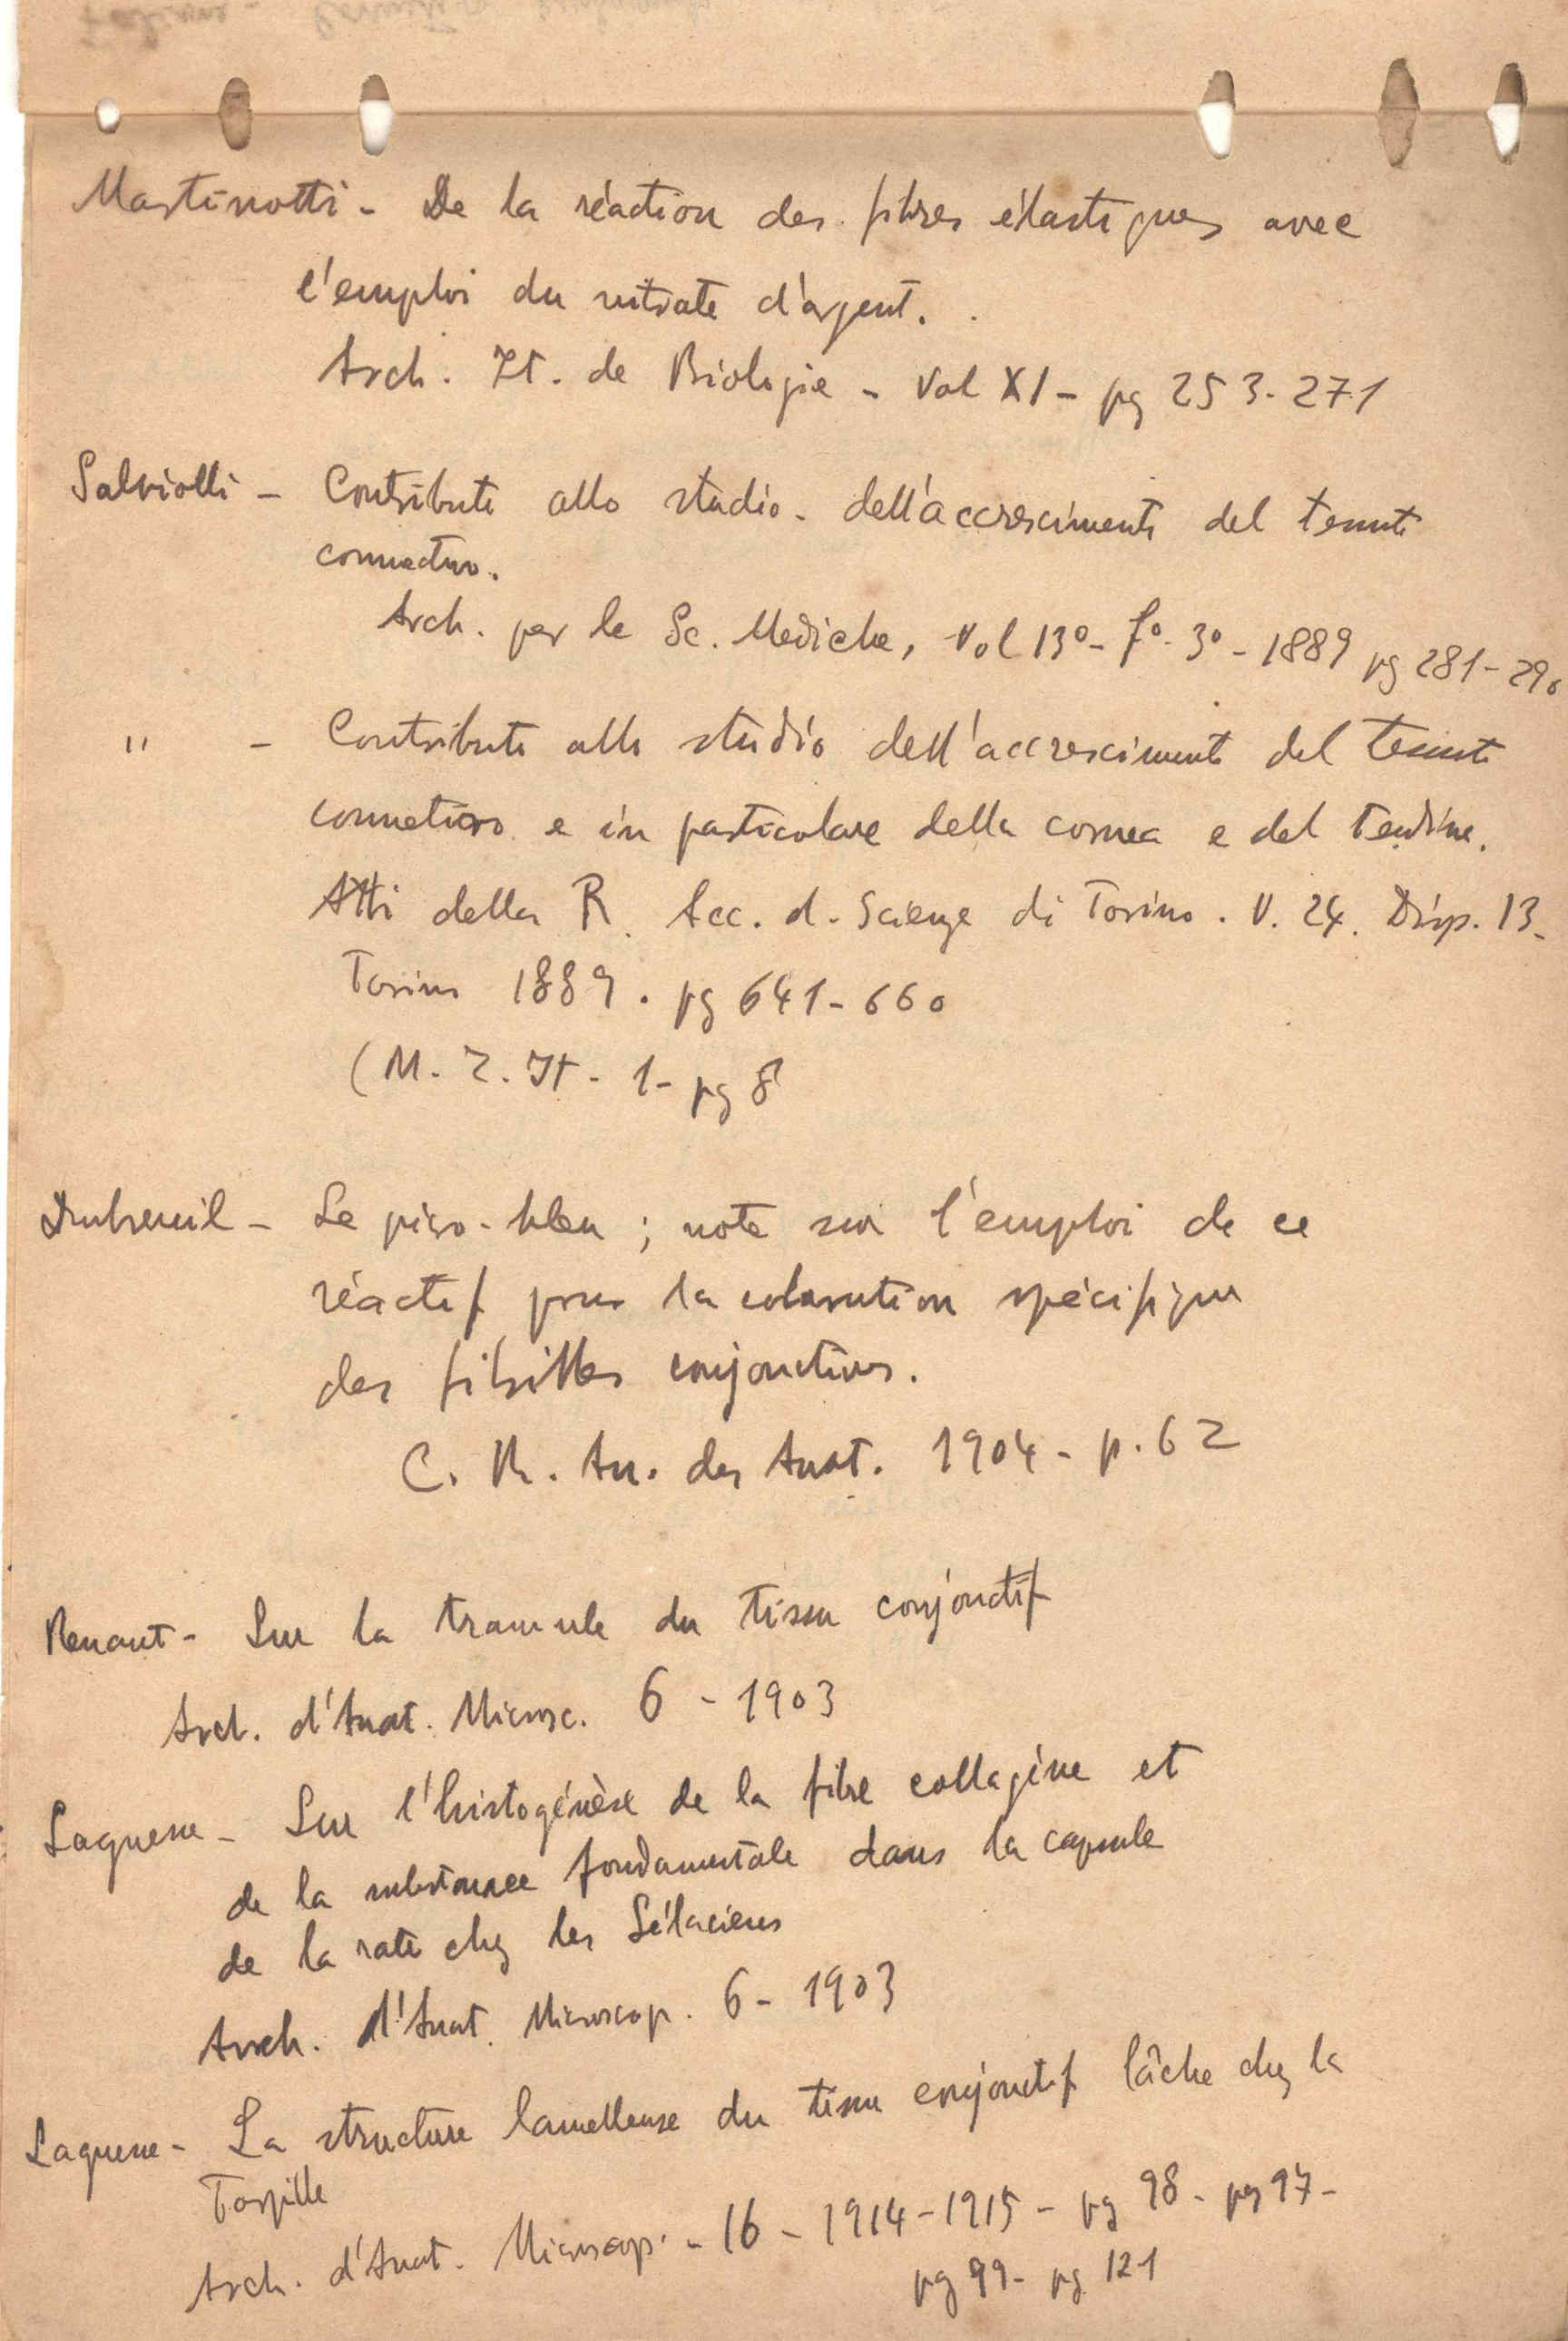 Martinotti - De la réaction des fibres élastiques avec
l'emploi du nitrate d'argent.
Arch. It. de Biologie - Vol XI - pg 253-271
Salviolli - Contributo allo studio - dell'accrescimento del tessuto
connectivo.
Arch. per le Sc. Mediche, Vol 13º - fº- 3º - 1889 pg 281-290
" - Contributo allo studio dell'accrescimento del tessuto
connetivo e in particolare della cornea e del tendine.
Atti della R. Acc. d. Scienze di Torino. V. 24. Disp. 13-
Torino 1889. pg 641-660
(M. Z. It - 1- pg 8
Dubreuil - Le picro-bleu ; note sur l'emploi de ce
réactif pour la coloration spécifique
des fibrilles conjonctives.
C. R. An. des Anat. 1904 - p. 62
Renaut - Sur la tramule du tissu conjonctif
Arch. d'Anat. Microsc. 6 - 1903
Laguesse - Sur l'histogénèse de la fibre collagène et
de la substance fondamentale dans la capsule
de la rate chez les Sélaciens
Arch. d'Anat. Microscop. 6 - 1903
Laguesse - La structure lamelleuse du tissu conjonctif lâche chez la
Torpille
Arch. d'Anat. Microscop. - 16 - 1914-1915 - pg 98 - pg 97-
pg 99- pg 121